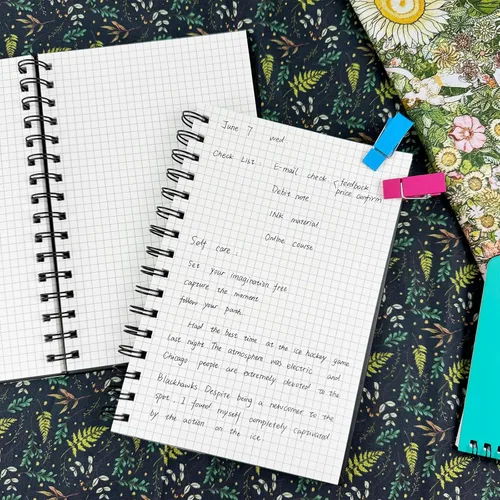 June 7 wed
Check List : E-mail check < feedback
price confirm
Debit note
INK material
Online course
Self care :
Set your imagination free
capture the moment
follow your path
Had the best time at the ice hockey game
last night. The atmosphere was electric and
Chicago people are extremely devoted to the
Blackhawks. Despite being a newcomer to the
sport, I found myself completely captivated
by the action on the ice.